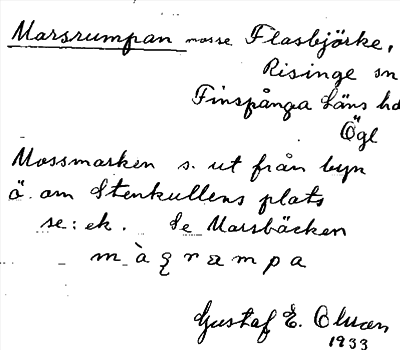 Marsrumpan mosse Flasbjörke,
Risinge sn
Finspånga läns hd
Ögl
Mossmarken s. ut från byn
ö. om Stenkullens plats
se: ek. Se Marsbäcken
Gustaf E.
1933